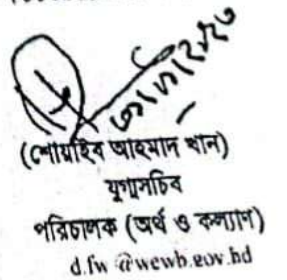 (শোয়াইব আহমাদ খান)
যুগ্মসচিব
পরিচালক (অর্থ ও কল্যাণ)
d.fw@wewb.gov.bd